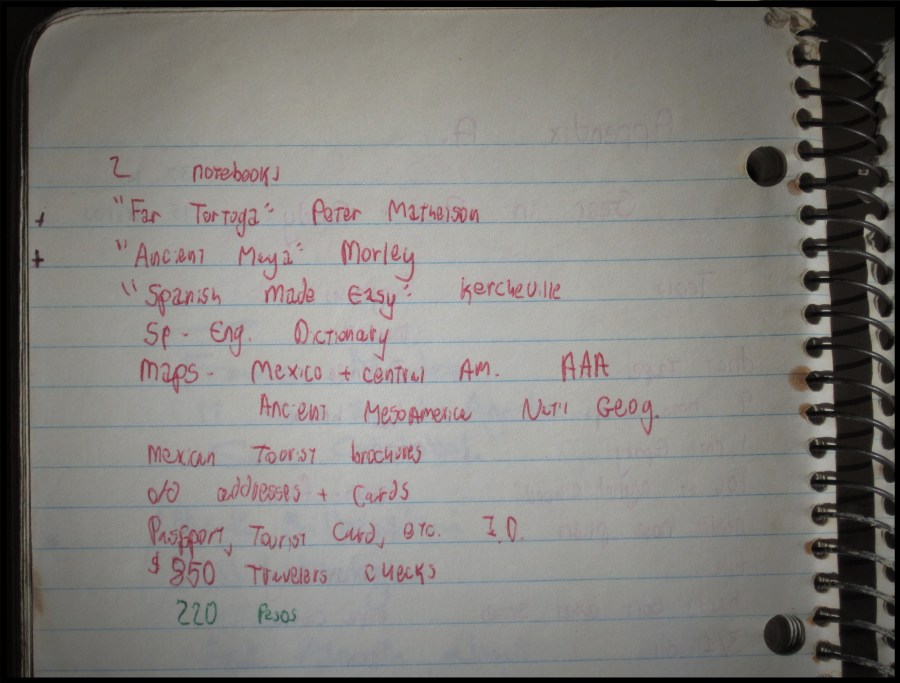 2 notebooks
+ "Far Tortuga" - Peter Matheison
+ "Ancient Maya" - Morley
"Spanish Made Easy" - Kercheville
Sp - Eng. Dictionary
Maps - Mexico + Central Am. AAA
Ancient MesoAmerica Nat'l Geog.
Mexican Tourist brochures
addresses + Cards
Passport, Tourist Card, etc. I.D.
$ 350 Travelers Checks
220 Pesos